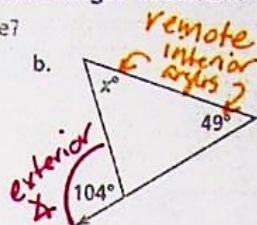 e?
remote
interior
angles
b.
x°
49°
exterior
∡
104°